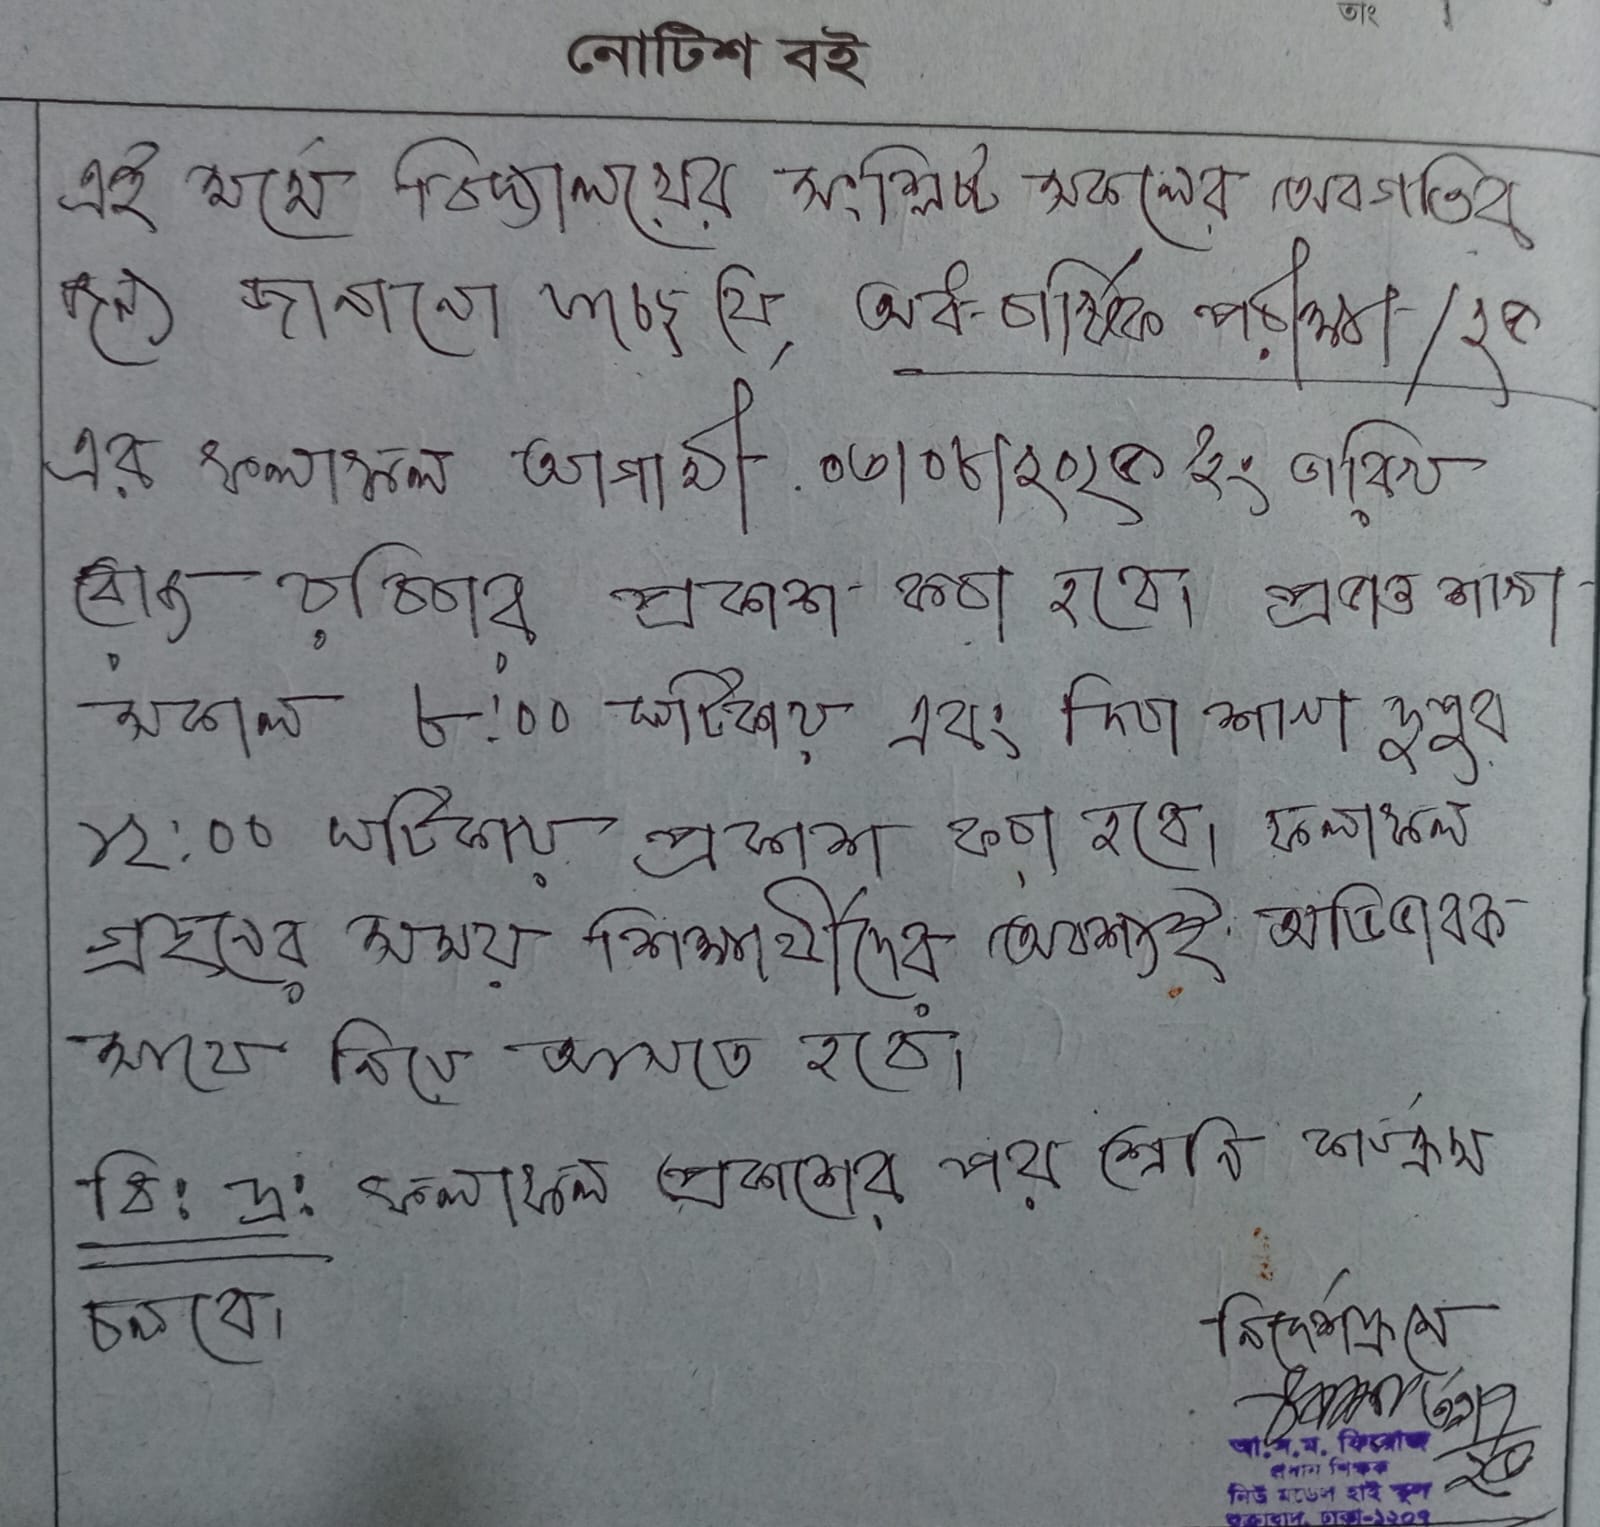 তাং
নোটিশ বই
এই মর্মে বিদ্যালয়ের সংশ্লিষ্ট সকলের অবগতির
জন্য জানানো যাচ্ছে যে, অর্ধ-বার্ষিক পরীক্ষা/২৫
এর ফলাফল আগামী ০৩/০৮/২০২৫ ইং তারিখ
রোজ রবিবার প্রকাশ করা হবে। প্রভাত শাখা
সকাল ৮:০০ ঘটিকায় এবং দিবা শাখা দুপুর
১২:০০ ঘটিকায় প্রকাশ করা হবে। ফলাফল
গ্রহনের সময় শিক্ষার্থীদের অবশ্যই অভিভাবক
সাথে নিয়ে আসতে হবে।
বি: দ্র: ফলাফল প্রকাশের পর শ্রেনি কার্যক্রম
চলবে।
নির্দেশক্রমে
প্রধান শিক্ষক
নিউ মডেল হাই স্কুল
ঢাকা-১২০৭